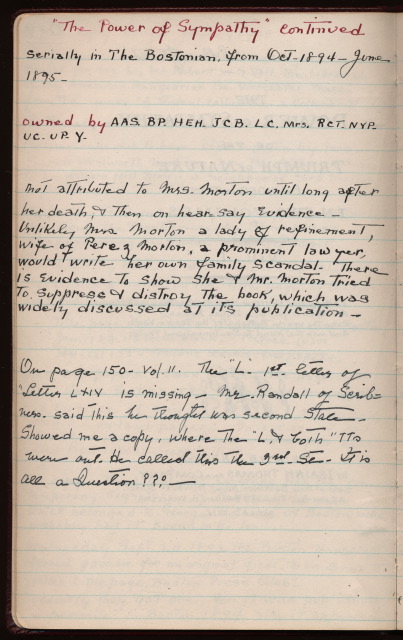 "The Power of Sympathy" continued
serially in The Bostonian, from Oct-1894-June
1895-
owned by AAS. BP. HEH. JCB. LC. Mrs. RCT. NYP.
UC. UP. Y-
not attributed to Mrs. Morton until long after
her death, & then on hear-say Evidence -
Unlikely Mrs Morton a lady of refinement,
wife of Perez Morton, a prominent lawyer,
would write her own family scandal. There
is Evidence To show she & Mr. Morton tried
To suppress & distroy the book, which was
widely discussed at its publication -
On page 150- Vol. II. The "L"- 1st letter of
"Letter LXIV is missing - Mr. Randall of Scrib=
ners. said this he thought was second State-
Showed me a copy, where the "L. & both "Ts
were out. He called this the 3rd St-. It is
all a Question ???-